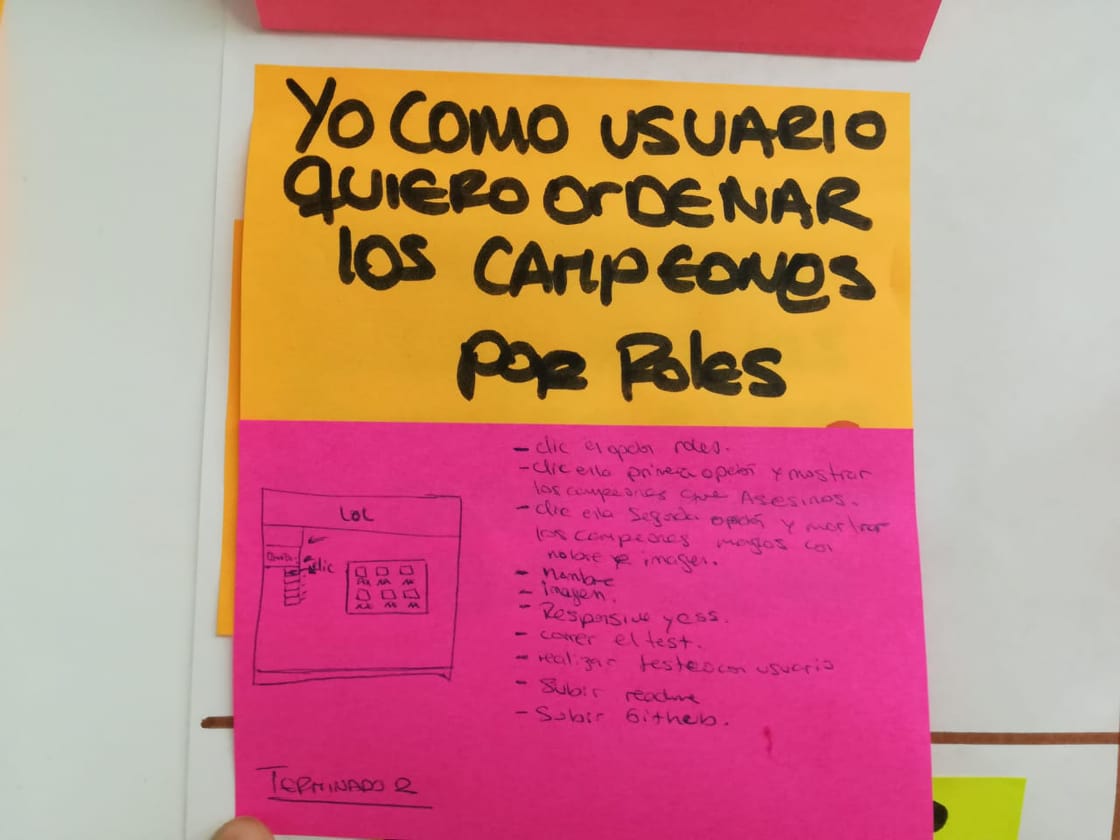 YO COMO USUARIO
QUIERO OrDENAR
LOS CAMPEONES
POR Roles
- clic el opción roles.
- clic en la primera opción y mostrar
los campeones que Asesinos.
- clic en la segunda opción y mostrar
los campeones magos con
nobre e imagen.
- Nombre
- Imagen.
- Responsive y css.
- correr el test.
- realizar testeo con usuario
- Subir readme
- Subir Github.
LOL
clic
TERMINADO 2